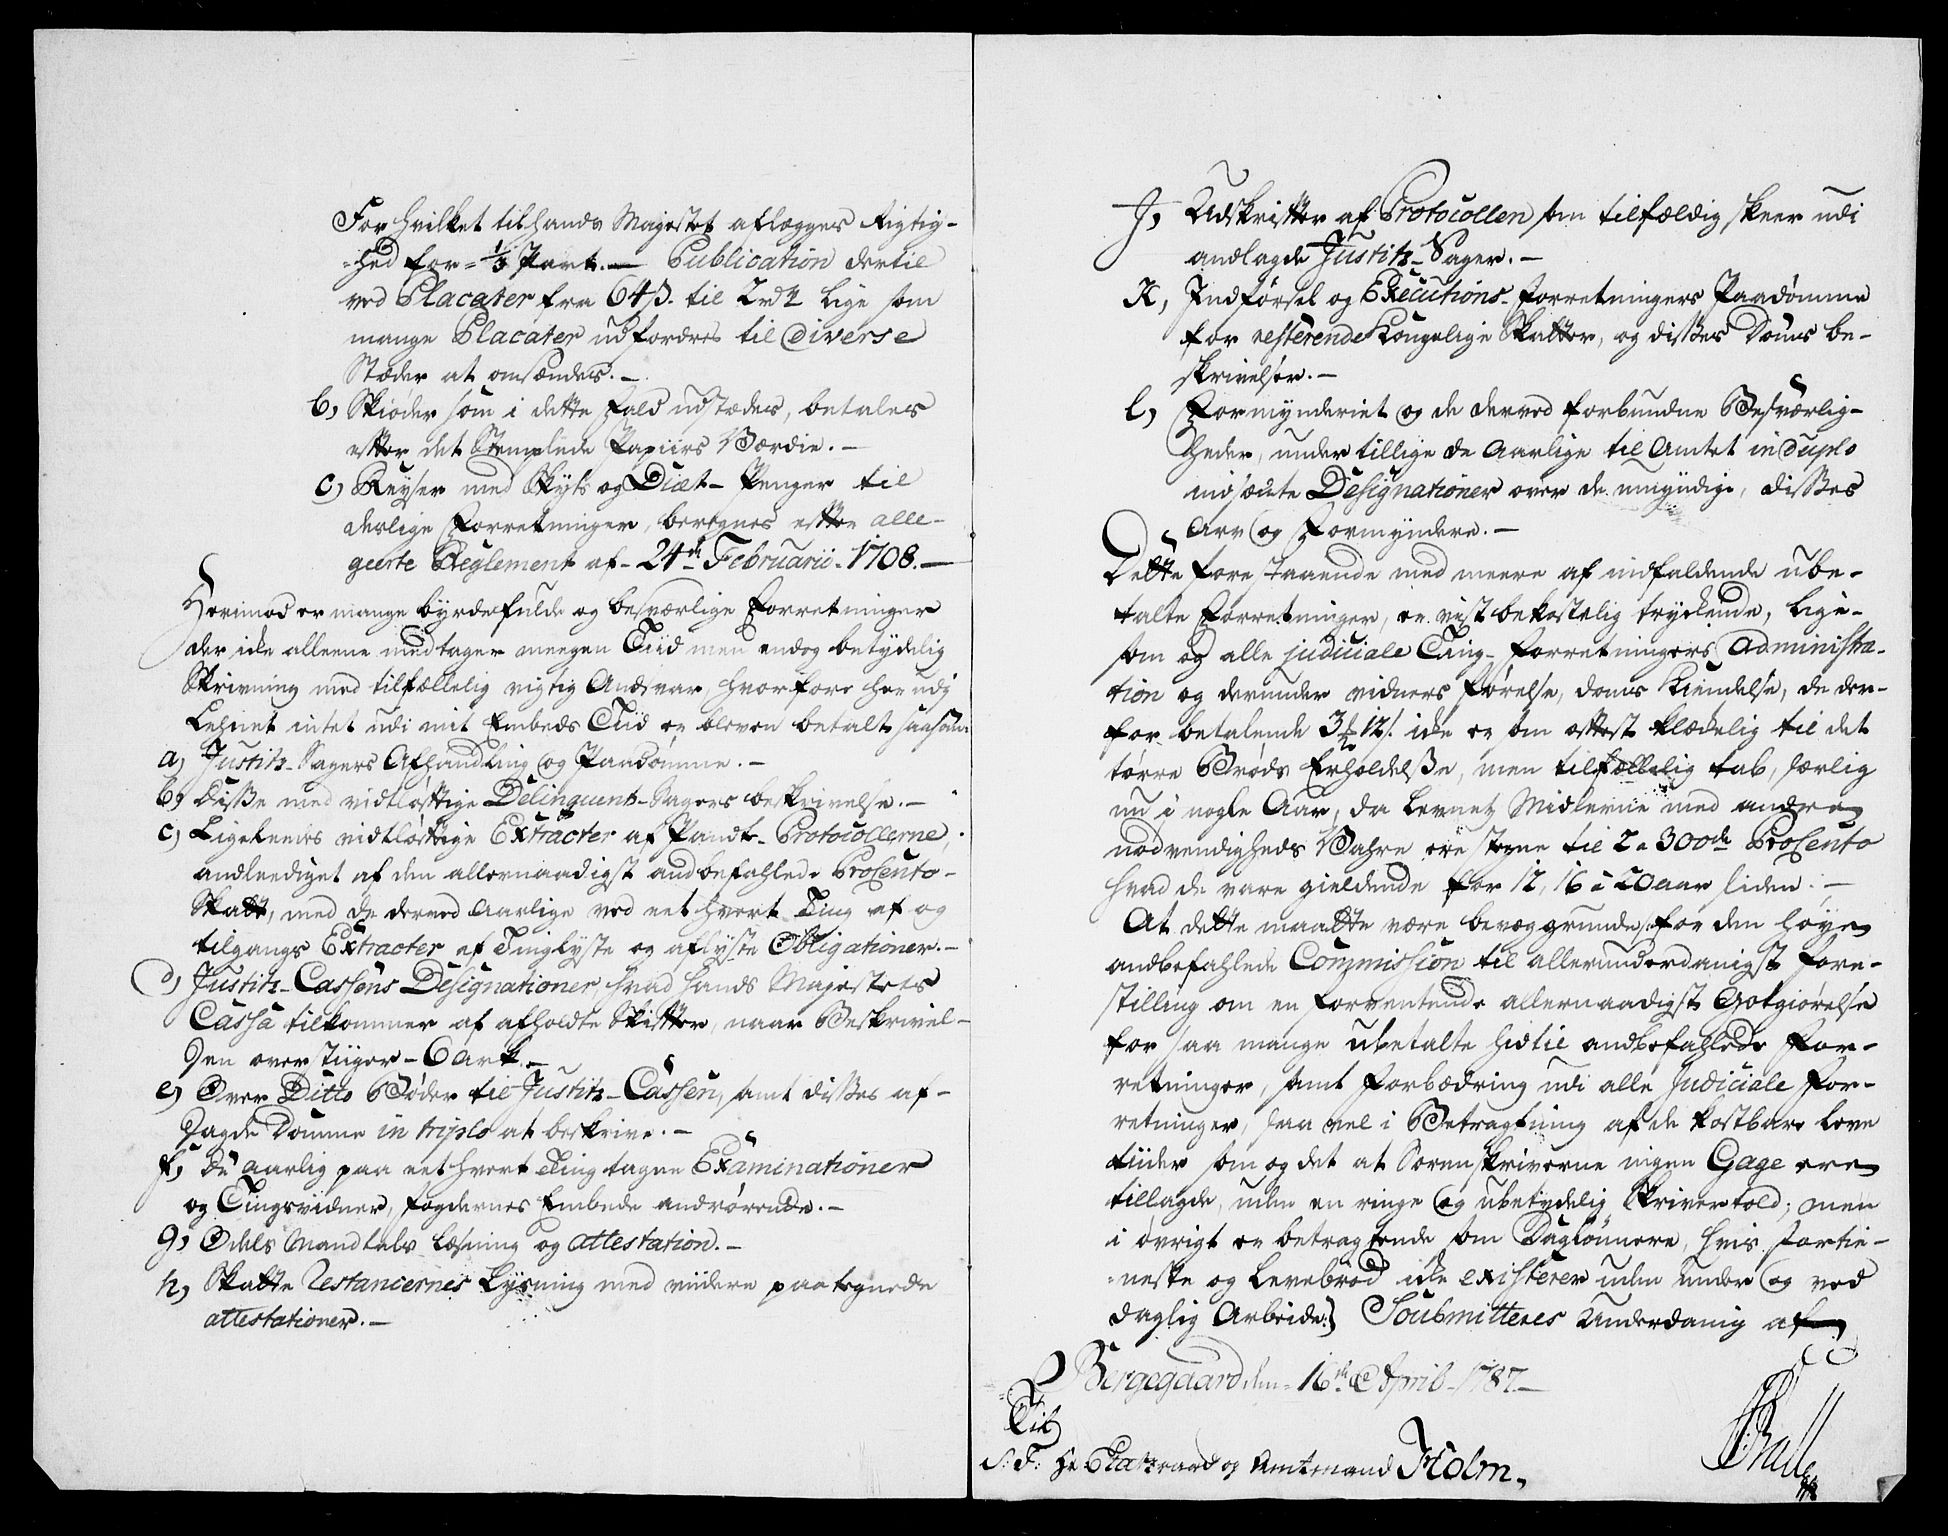 For hvilket til hands Majestet aflægges Rigtig-
=hed for = 1/3 Part. — Publication dertil
ved Placater fra 64 s. til 2 rdr lige som
mange Placater udfordres til diverse
Stæder at omsændes. —
b, Skiøder som i dette Fald udstædes, betales
efter det Stemplede Papiirs Værdie. —
c, Reyser med Skyts og Diæt-Penger til
deslige Forretninger, beregnes efter alle-
geerte Reglement af - 24de Februarii - 1708. —
Herimod er mange byrdefulde og besværlige Forretninger
der icke alleene medtager meegen Tiid men endog betydelig
Skrivning med tilfællelig vigtig Andsvar, hvorfore her udj
Lehnet intet udi mit Embeds Tiid er bleven betalt saasom
a, Justitz-Sagers Afhandling og Paadømme. —
b, Disse med vidtløftige Delinquent-Sagers beskrivelse. —
c, Ligeleedes vidtløftige Extracter af Pandt-Protocollerne,
andleediget af den allernaadigst andbefahlede Prosento-
Skatt, med de derved Aarlige ved eet hvert Ting af og
tilgangs Extracter af Tinglyste og aflyste Obligationer. —
d, Justitz-Cassens Designationer, hvad hands Majestets
Cassa tilkommer af afholdte Skifter, naar Beskrivel-
sen overstiiger - 6 Ark. —
e, Over Ditto Bøder til Justitz-Cassen, samt disses af-
sagde Domme in triplo at beskrive. —
f, De aarlig paa eet hvert Ting tagne Examinationer
og Tingsvidner, fogdernes Embede andrørende. —
g, Odels Mandtals Læsning og attestation. —
h, Skatte Restancernes Lysning med viidere paategnede
attestationer. —
J, Udskrifter af Protocollen som tilfældig skeer udi
andlagde Justitz-Sager. —
K, Indførsel og Executions-Forretningers Paadømme
for resterende Kongelige Skatter, og disses Doms be-
skrivelser. —
l, Formynderiet og de derved forbundne Besværlig-
heder, under tillige de Aarlige til Amtet in duplo
indsænte Designationer over de umyndige, disses
Arv og Formyndere. —
Dette forestaaende med meere af indfaldende ube-
talte Forretninger, er vist bekostelig tryckende, lige-
som og alle judiciale Ting-Forretningers Administra-
tion og derunder vidners førelse, doms Kiendelse, de der-
for betalende 3 12 s. icke er som oftest klædelig til det
tørre Brøds Erholdelse, men tilfællelig tab, særlig
nu i nogle Aar, da Levnets Midlerne med andre
nødvendigheds Vahre ere stegne til 2 a 300de Prosento
hvad de vare gieldende for 12, 16 à 20 aar siden. —
At dette maatte være bevæggrunde for den høye
andbefahlede Commission til allerunderdanigst fore-
stilling om en forventende allernaadigst Gotgiørelse
for saa mange ubetalte hidtil andbefahlede for-
retninger, samt forbædring udi alle Judiciale for-
retninger, saa vel i Betragtning af de kostbare leve
tiider som og det at Sorenskriverne ingen Gage ere
tillagde, uden en ringe og ubetydelig Skrivertold; men
i øvrigt er betragtende som Daglønnere, hvis fortie-
=neste og Levebrød icke existerer uden under og ved
daglig Arbeide:) Soubmitteres Underdanig af
Bergegaard den - 16de April - 1787 —
Til
S: T: Hr Etatzraad og Amtmand Holm.